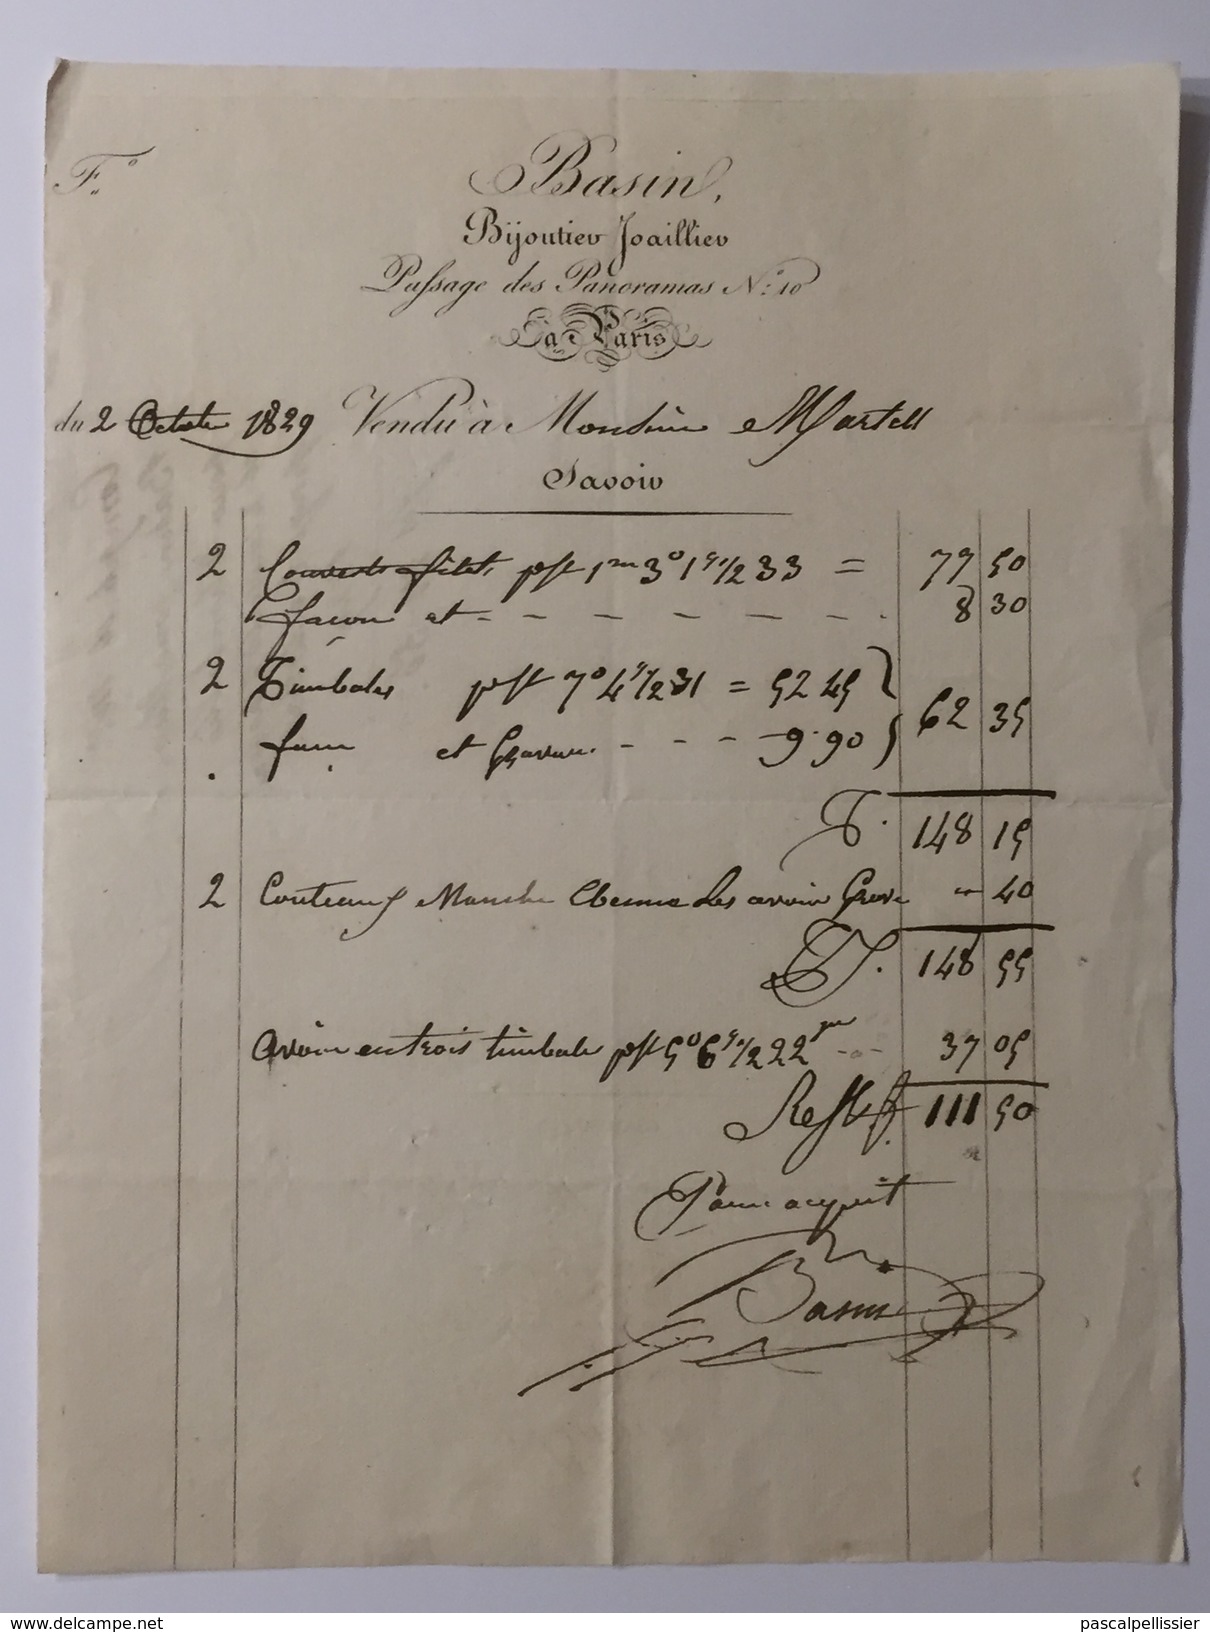 F.º
Basin,
Bijoutier Joaillier
Passage des Panoramas Nº 10
à Paris
du 2 Octobre 1829 Vendu à Monsieur Martell
Savoir
2 Couverts filets pst 1m 3o 1g 1/2 33 = 77 50
façon et - - - - - - - 8 30
2 Timbales pst 7o 4g 1/2 31 = 52 45 } 62 35
façon et Gravure - - - - 9.90
T. 148 15
2 Couteaux Manche Ebenne Les avoir Gravé " 40
T. 148 55
Avoir en trois timbales pst 5o 6g 1/2 22 - - 37 05
Reste f 111 50
Pour acquit
Basin
delcampe.net
pascalpellissier